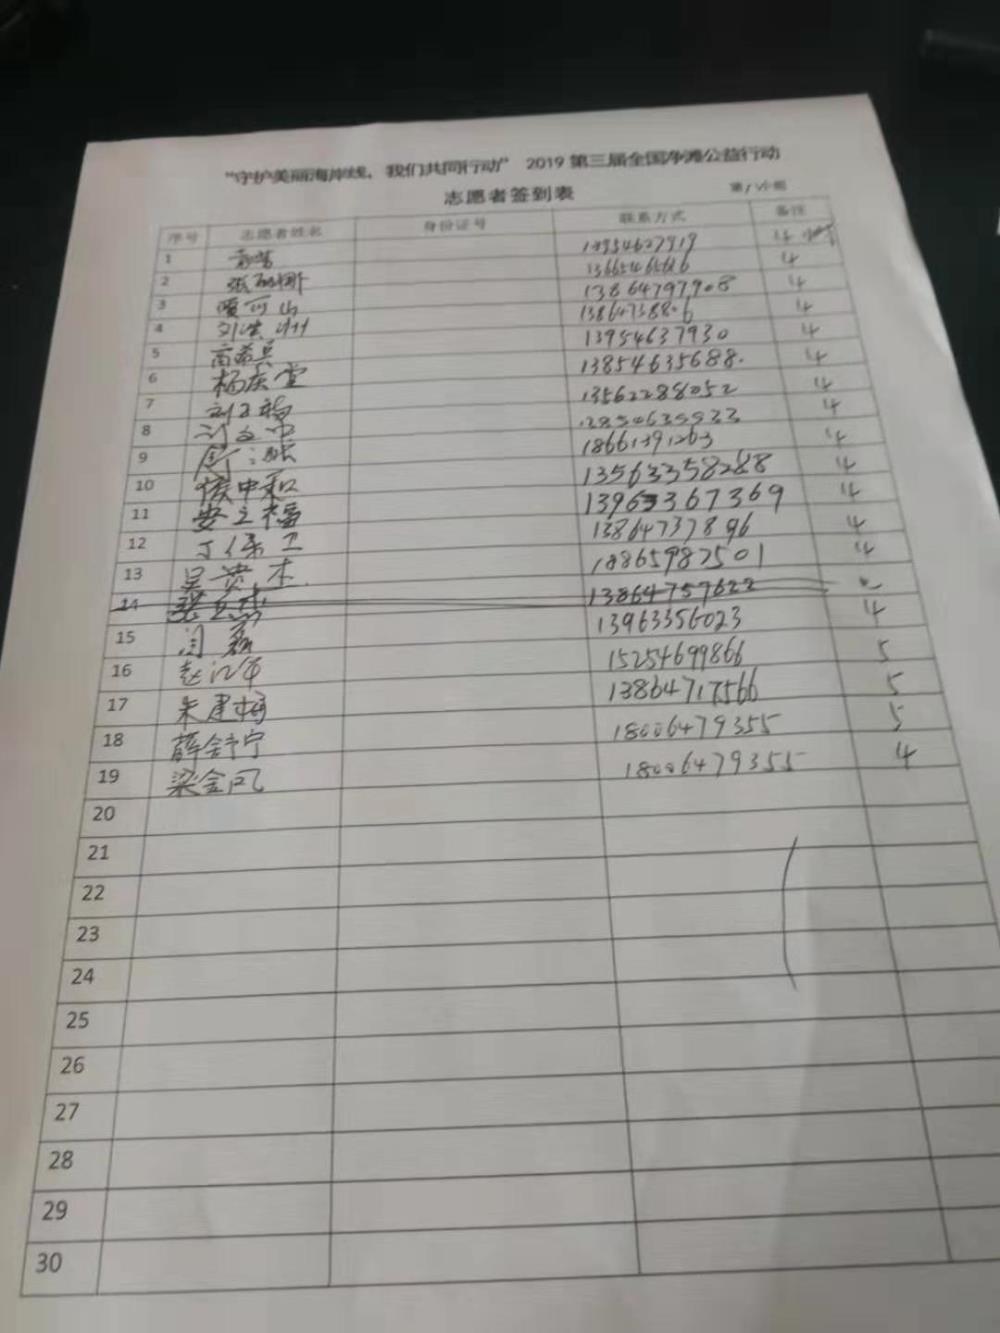 “守护美丽海岸线，我们共同行动” 2019 第三届全国净滩公益行动
志愿者签到表 第1小组
序号 志愿者姓名 身份证号 联系方式 备注
1 4小时
2 4
3 13864797908 4
4 刘洪州 4
5 高希兵 13954637930 4
6 杨庆堂 13854635688. 4
7 13562288052 4
8 刘文 4
9 18661391263 4
10 侯中和 13563358288 4
11 安立福 13963367369 4
12 丁保卫 13864737896 4
13 吴贵杰 18865987501 4
14 13864757622
15 闫磊 13963356023 4
16 赵江军 15254699866 5
17 朱建梅 13864717566 5
18 薛舒宁 18006479355 5
19 梁金凤 18006479355 4
20
21
22
23
24
25
26
27
28
29
30